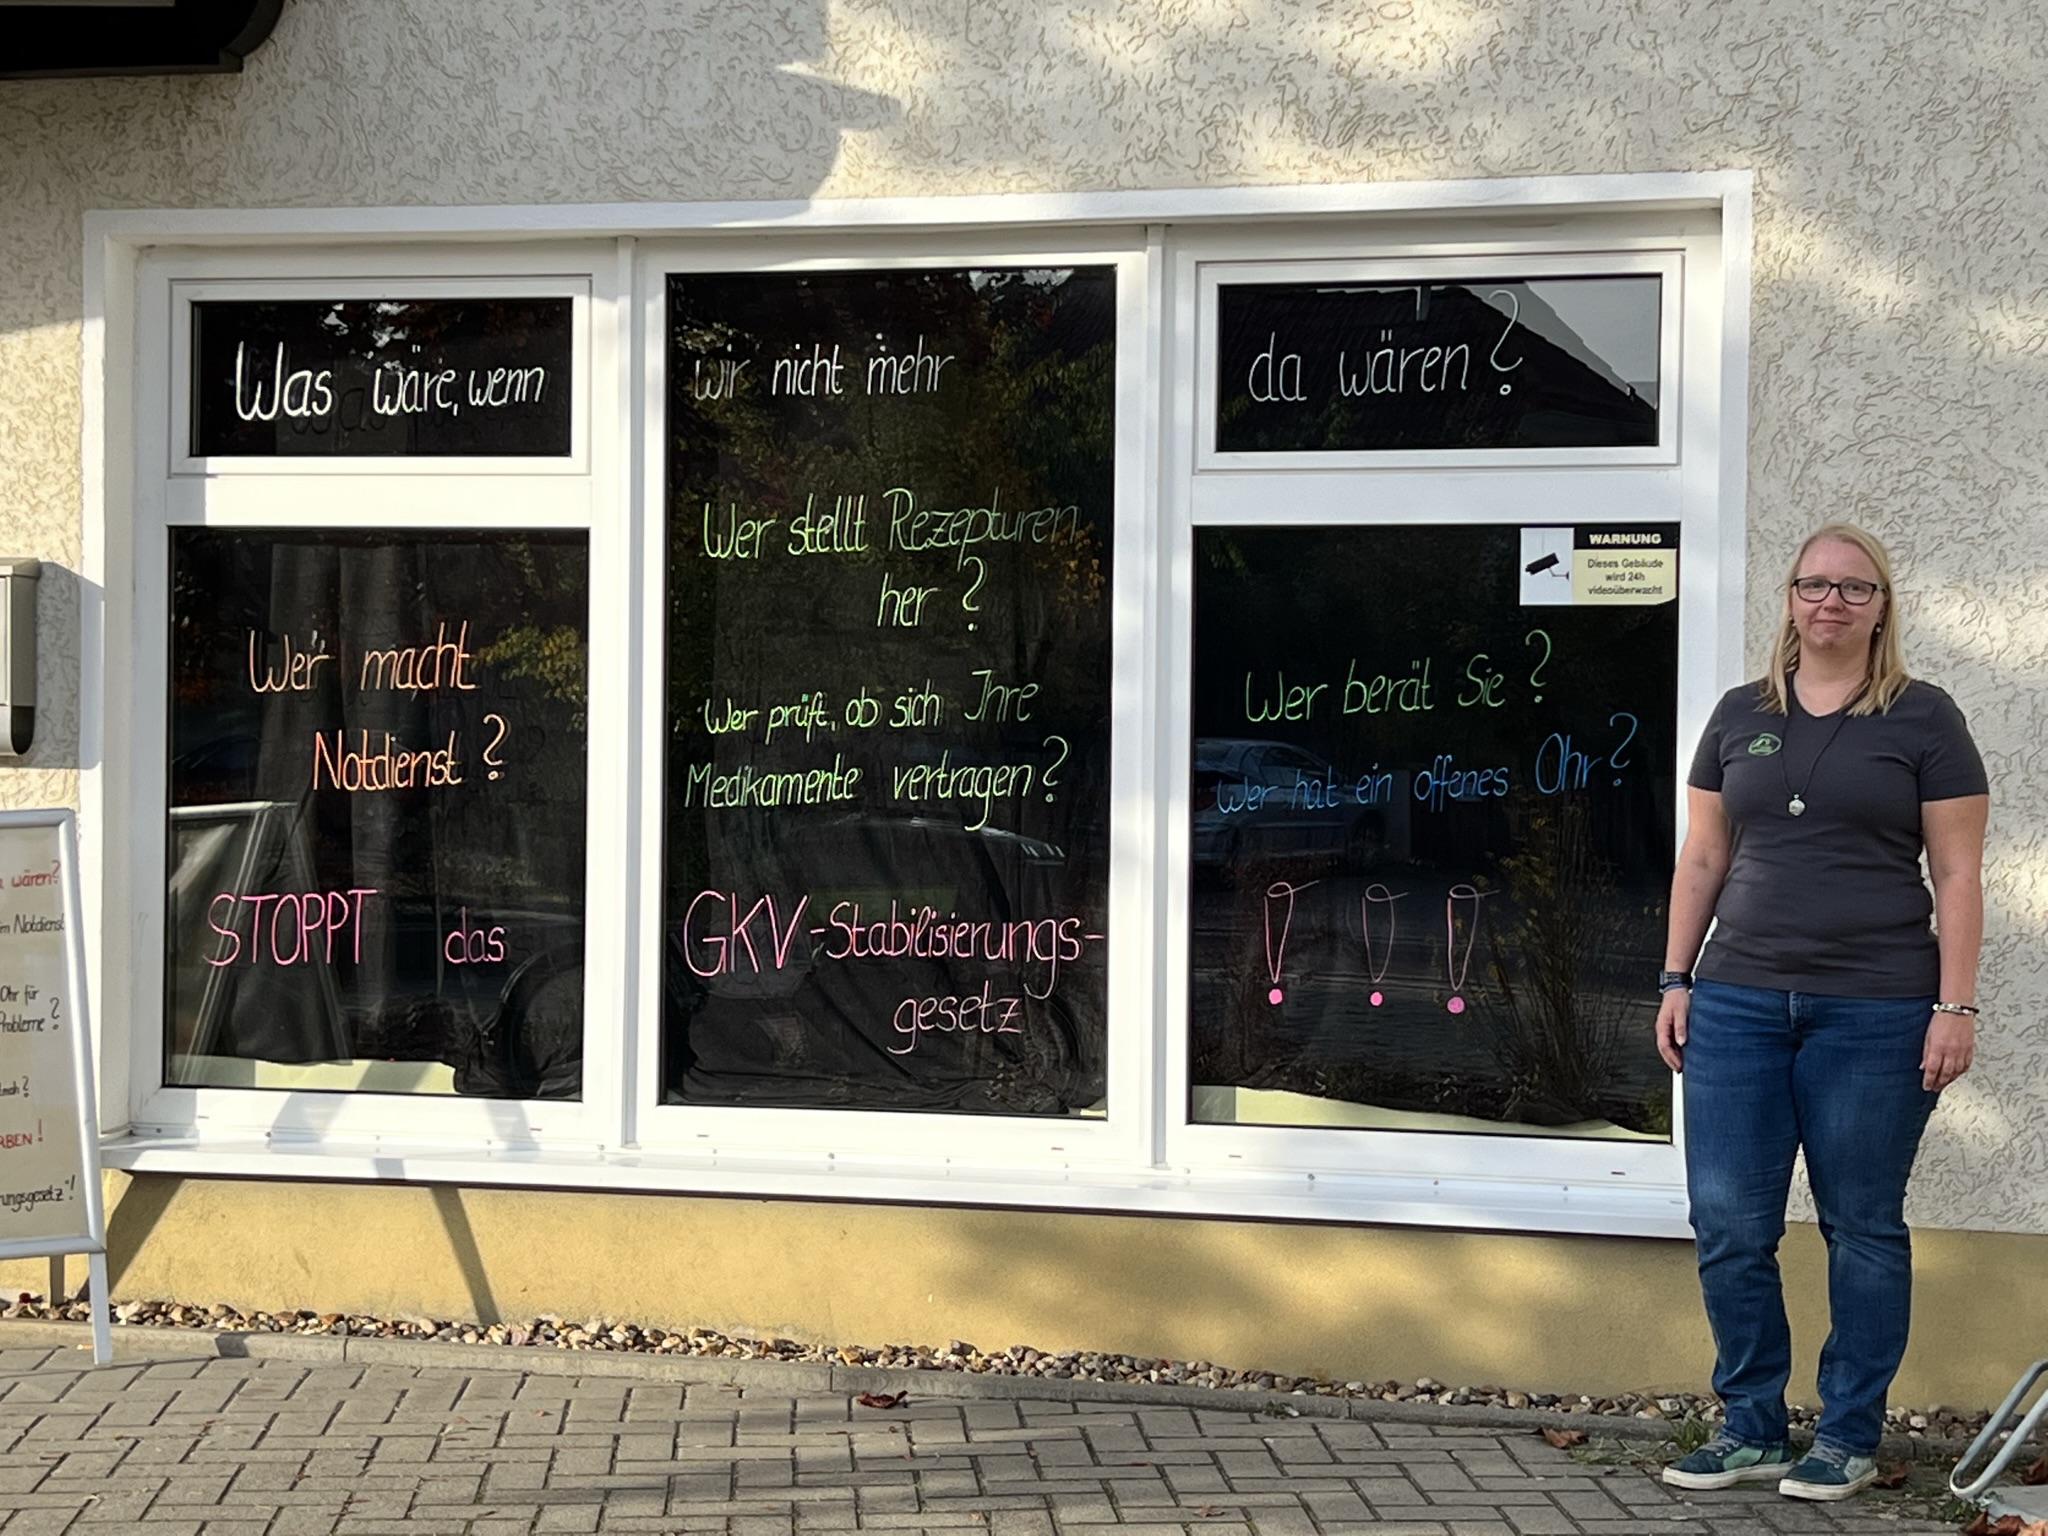 Was wäre, wenn wir nicht mehr da wären?
Wer macht
Notdienst?
STOPPT das
Wer stellt Rezepturen
her?
Wer prüft, ob sich Ihre
Medikamente vertragen?
GKV-Stabilisierungs-
gesetz
WARNUNG
Dieses Gebäude
wird 24h
videoüberwacht
Wer berät Sie?
Wer hat ein offenes Ohr?
! ! !
wären?
Notdienst
Ohr für
Probleme?